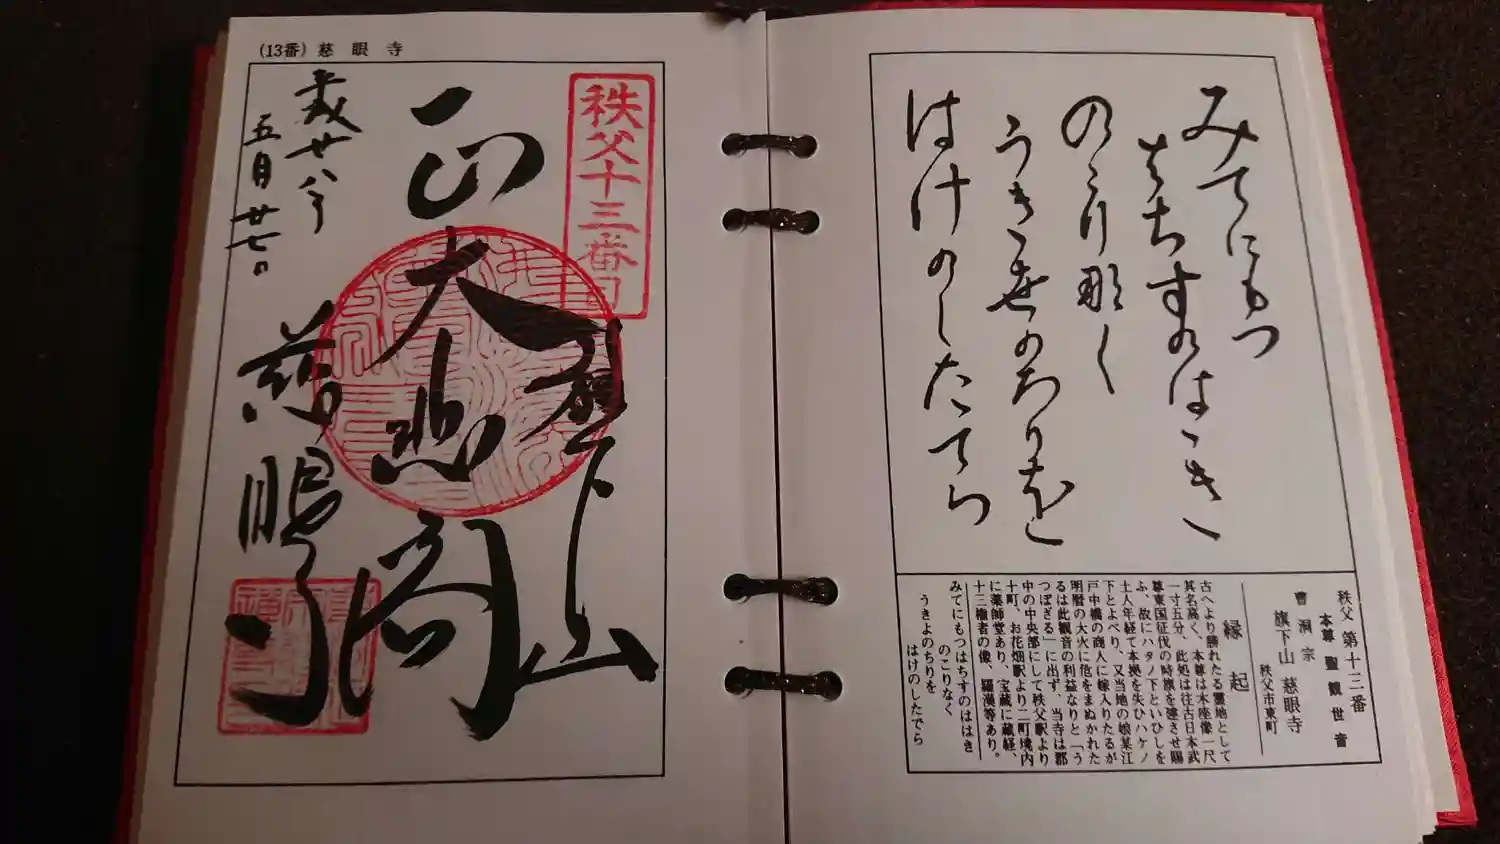 みてにもつ
はちすのはゝきゝ
のこり那く
うきゝ世のちりをと
はけのしたてら
秩父 第十三番
本尊 聖観世音
曹洞宗
旗下山 慈眼寺
秩父市東町
縁起
古へより勝れたる霊地として
其名高く、本尊は木座像一尺
一寸五分、此処は往古日本武
尊東国征伐の時旗を建させ賜
ふ、故にハタノ下といひしを
土人年経て本拠を失ひハケノ
下とよべり、又当地の娘某江
戸中橋の商人に嫁入りたるが
明暦の大火に危をまぬかれた
るは此観音の利益なりと「う
つぼぎる」に出ず、当寺は郡
中の中央部にして秩父駅より
十町、お花畑駅より二町境内
に薬師堂あり、宝蔵に蔵経、
十三権者の像、羅漢等あり。
みてにもつはちすのははき
のこりなく
うきよのちりを
はけのしたでら
(13番) 慈眼寺
秩父十三番
旗下山
正
大悲閣
歳廿八年
五月廿七日
慈眼寺